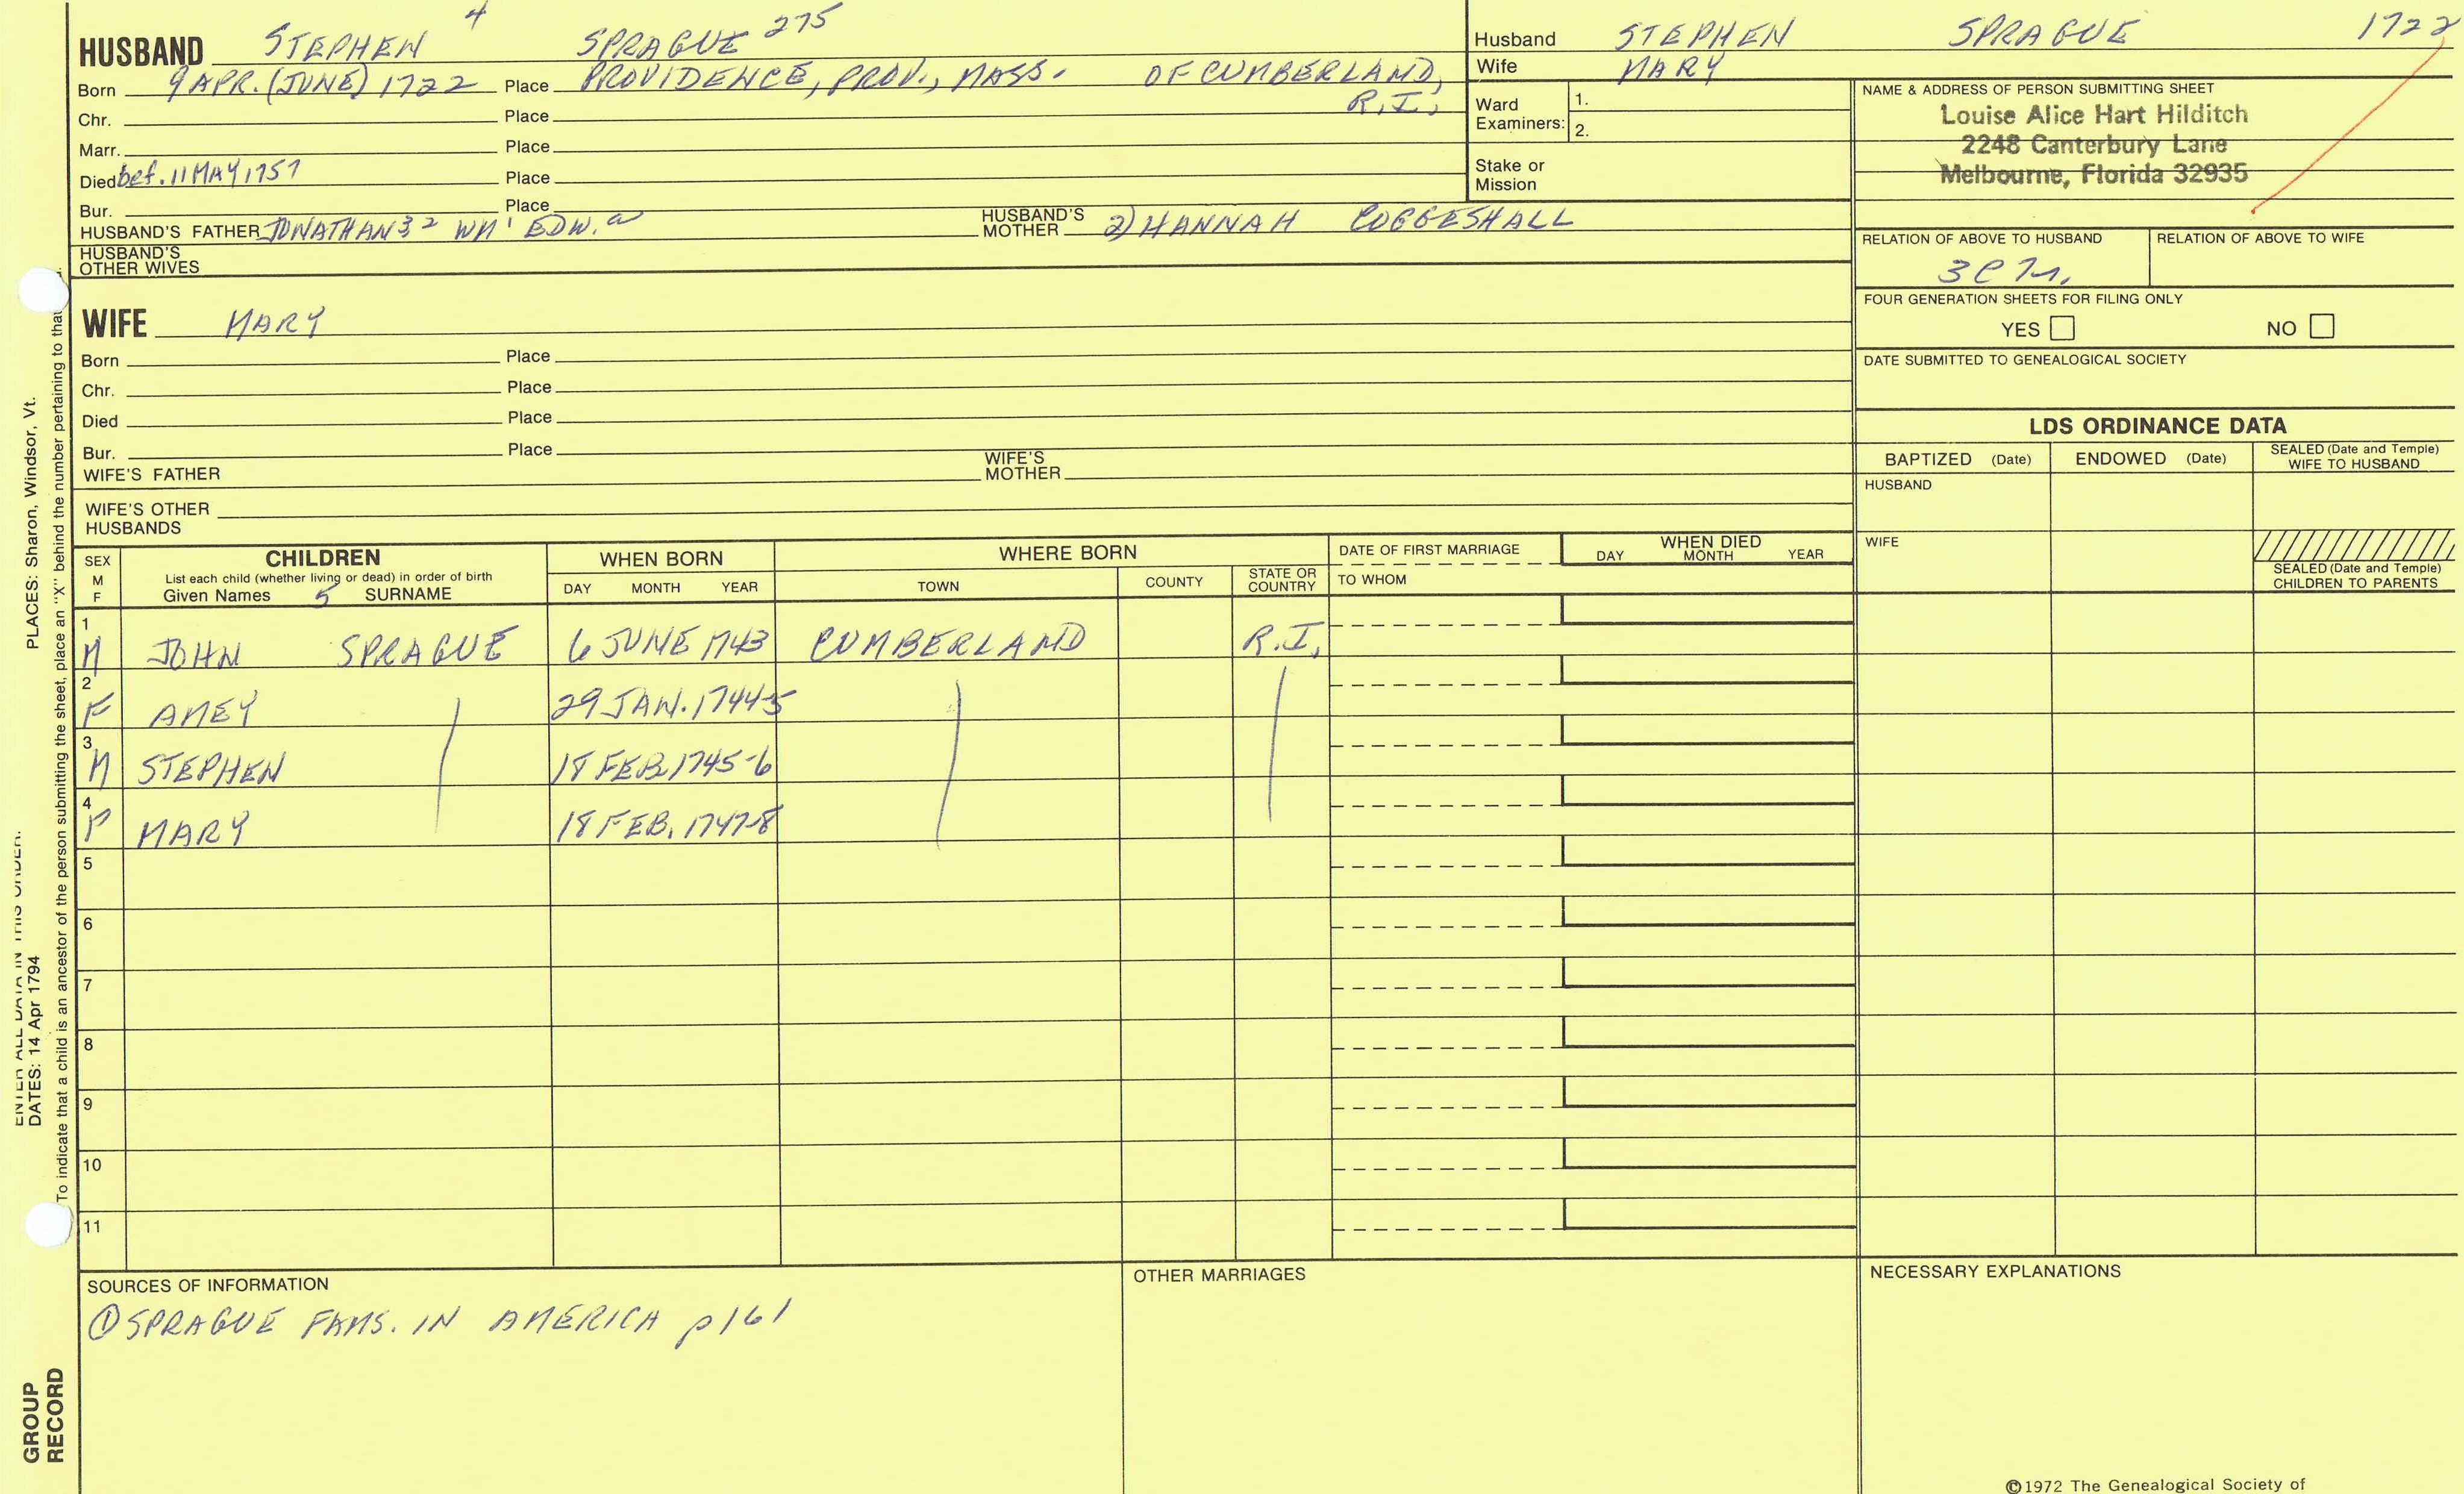 HUSBAND STEPHEN 4 SPRAGUE 275
Born 9 APR. (JUNE) 1722 Place PROVIDENCE, PROV., MASS. OF CUMBERLAND, R.I.,
Chr. Place
Marr. Place
Died bef. 11 MAY 1757 Place
Bur. Place
HUSBAND'S FATHER JONATHAN 3 2 WM 1 EDW. a HUSBAND'S MOTHER 2) HANNAH COGGESHALL
HUSBAND'S OTHER WIVES
Husband STEPHEN SPRAGUE 1722
Wife MARY
Ward Examiners: 1.
2.
Stake or Mission
NAME & ADDRESS OF PERSON SUBMITTING SHEET
Louise Alice Hart Hilditch
2248 Canterbury Lane
Melbourne, Florida 32935
RELATION OF ABOVE TO HUSBAND RELATION OF ABOVE TO WIFE
FOUR GENERATION SHEETS FOR FILING ONLY
YES NO
DATE SUBMITTED TO GENEALOGICAL SOCIETY
WIFE MARY
Born Place
Chr. Place
Died Place
Bur. Place
WIFE'S FATHER WIFE'S MOTHER
WIFE'S OTHER HUSBANDS
LDS ORDINANCE DATA
BAPTIZED (Date) ENDOWED (Date) SEALED (Date and Temple) WIFE TO HUSBAND
HUSBAND
WIFE
SEALED (Date and Temple) CHILDREN TO PARENTS
SEX M F CHILDREN WHEN BORN WHERE BORN DATE OF FIRST MARRIAGE WHEN DIED
List each child (whether living or dead) in order of birth
Given Names 5 SURNAME DAY MONTH YEAR TOWN COUNTY STATE OR COUNTRY TO WHOM DAY MONTH YEAR
1 M JOHN SPRAGUE 6 JUNE 1743 CUMBERLAND R.I.,
2 F AMEY 29 JAN. 1744-5
3 M STEPHEN 18 FEB. 1745-6
4 F MARY 18 FEB. 1747-8
5
6
7
8
9
10
11
SOURCES OF INFORMATION
① SPRAGUE FAMS. IN AMERICA p 161
OTHER MARRIAGES
NECESSARY EXPLANATIONS
©1972 The Genealogical Society of
ENTER ALL DATA IN THIS ORDER:
DATES: 14 Apr 1794 PLACES: Sharon, Windsor, Vt.
To indicate that a child is an ancestor of the person submitting the sheet, place an "X" behind the number pertaining to that
GROUP
RECORD